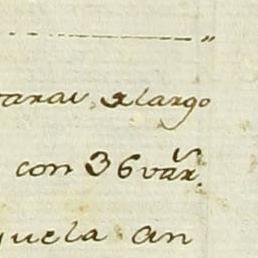 varas, x largo
con 36 var.
quela an